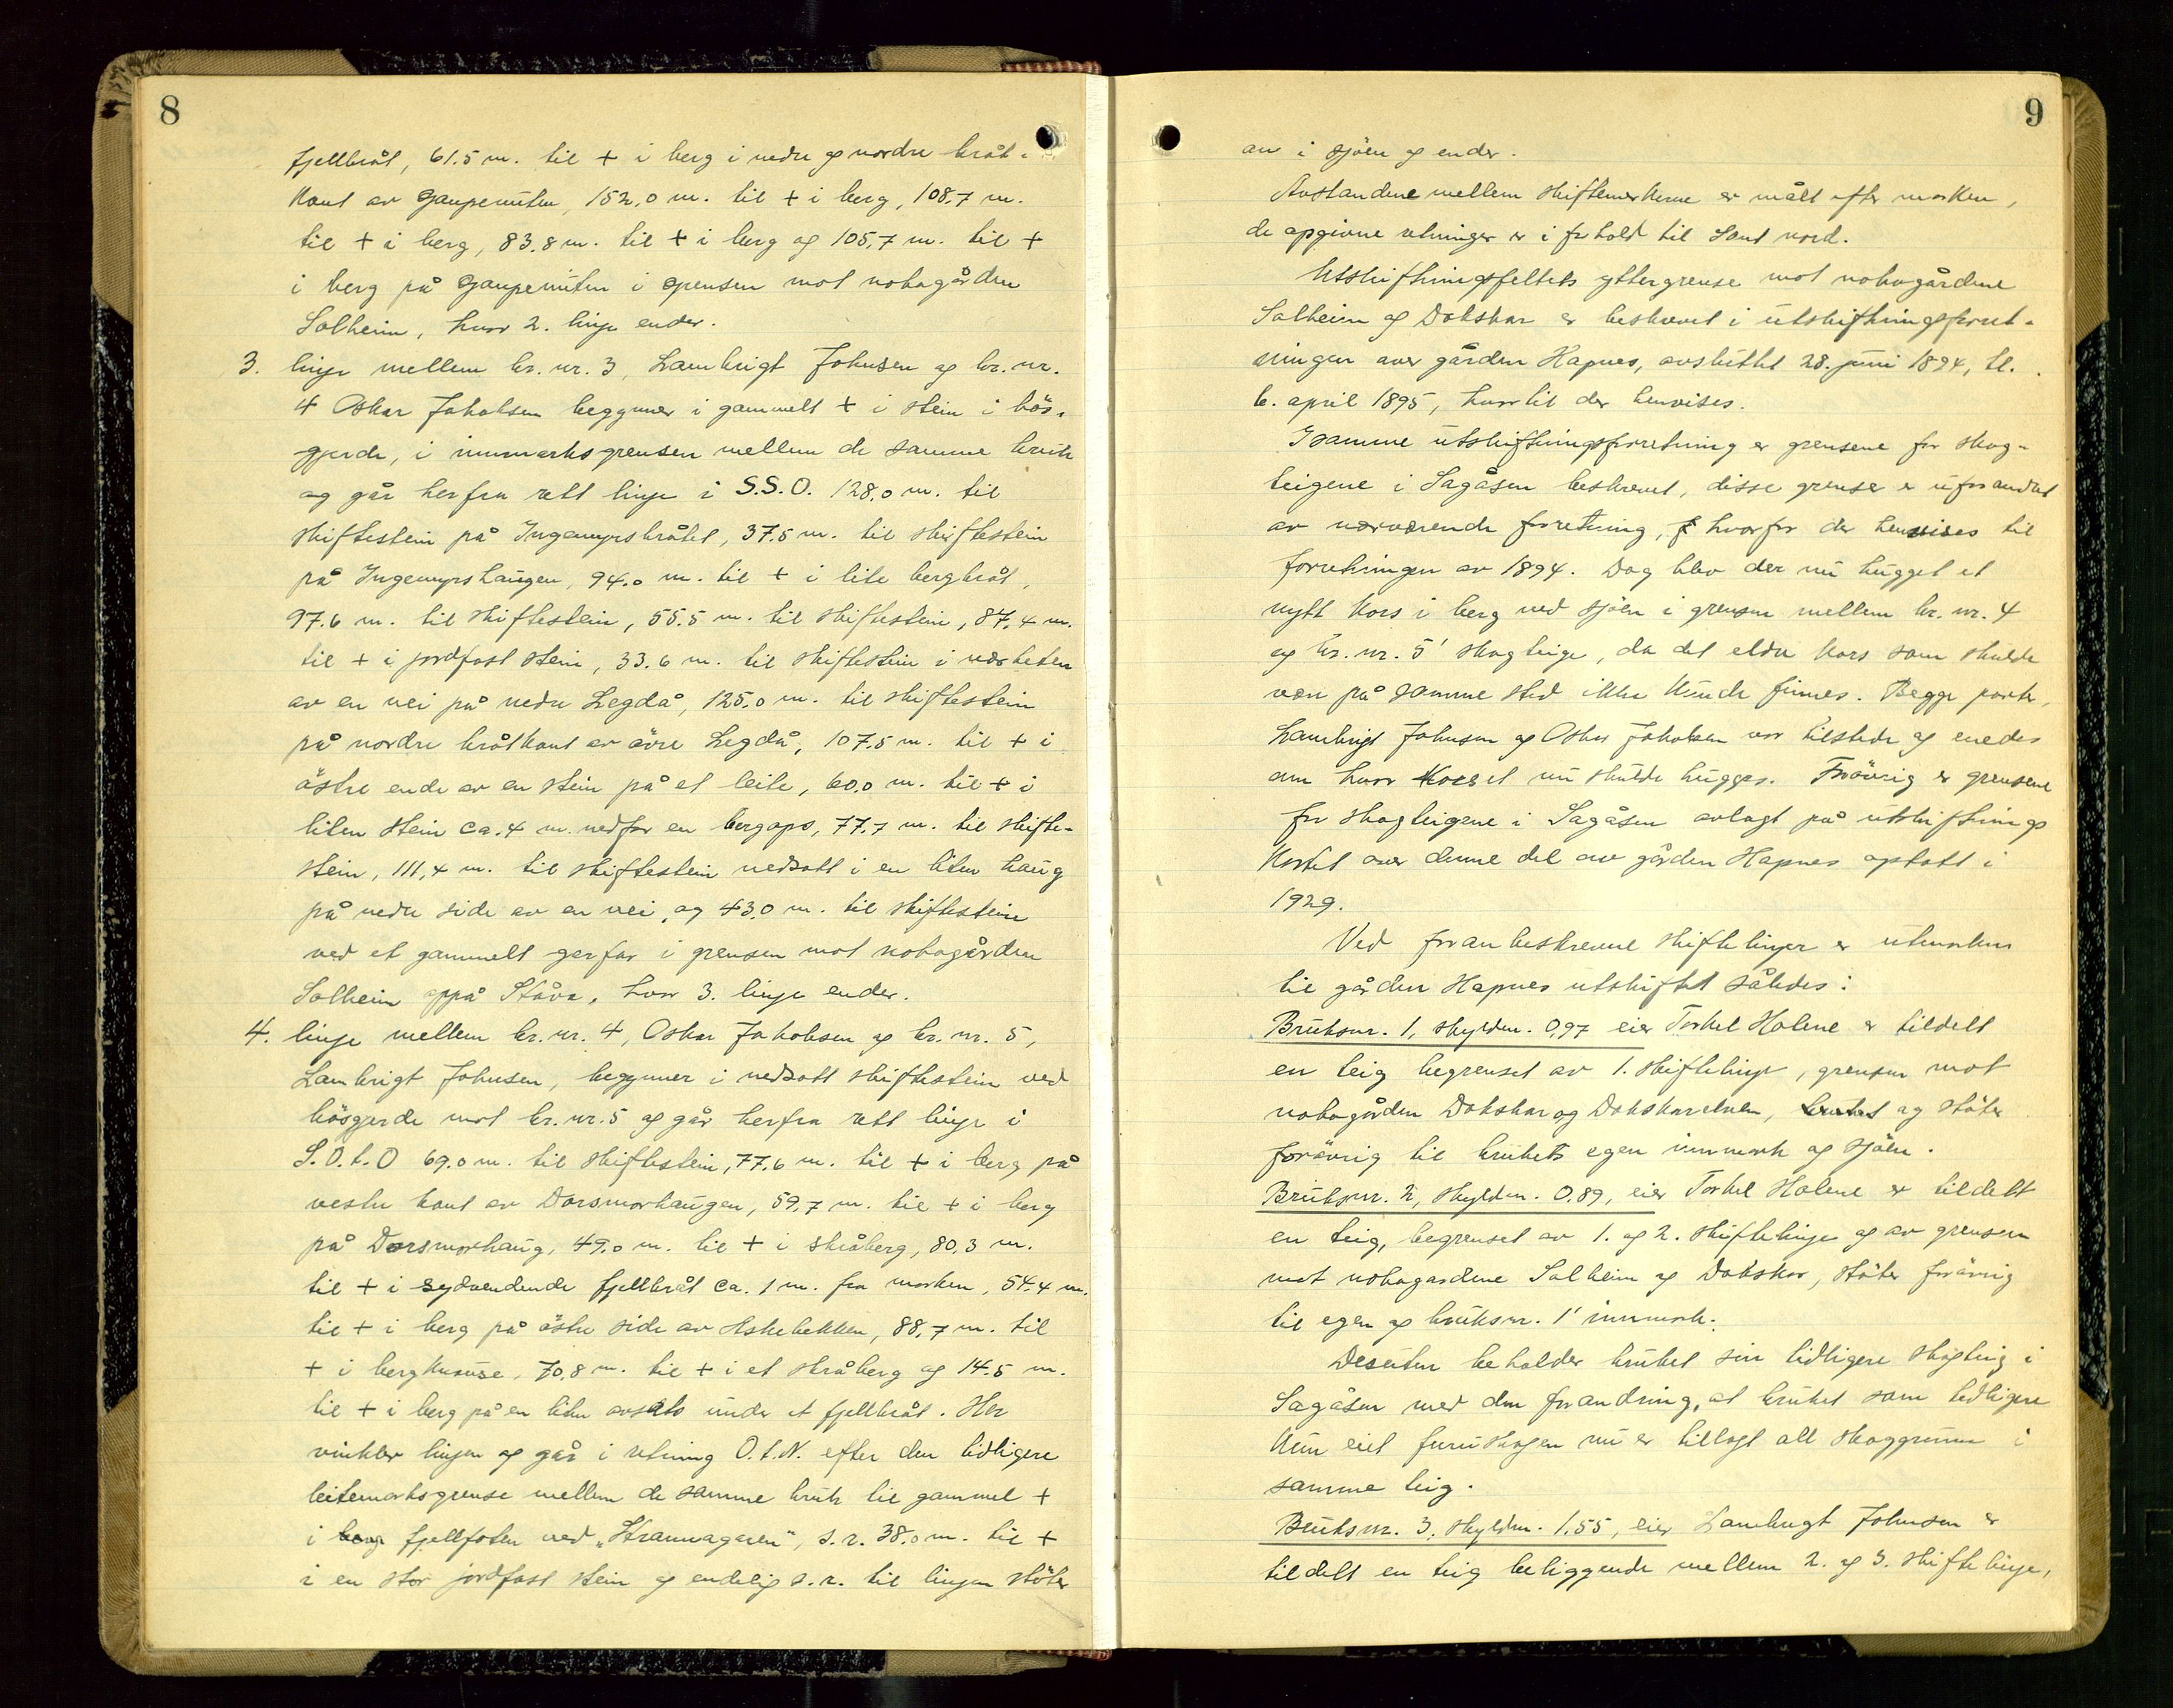 8
fjellbråt, 61.5 m. til + i berg i nedre og nordre bråt-
kant av Gaupenuten, 152,0 m. til + i berg, 108,7 m.
til + i berg, 83,8 m. til + i berg og 105,7 m. til +
i berg på Gaupenuten i grensen mot nabogården
Solheim, hvor 2. linje ender.
3. linje mellem br. nr. 3, Lambrigt Johnsen og br. nr.
4 Oskar Jakobsen begynner i gammelt + i stein i bös-
gjerde, i innmarksgrensen mellem de samme bruk
og går herfra rett linje i S.S.O. 128,0 m. til
skiftestein på Ingemyrsbråtet, 37,5 m. til skiftestein
på Ingemyrshaugen, 94,0 m. til + i lite bergbråt,
97.6 m. til skiftestein, 55.5 m. til skiftestein, 87,4 m.
til + i jordfast stein, 33.6 m. til skiftestein i nærheten
av en vei på nedre Legdå, 125,0 m. til skiftestein
på nordre bråtkant av övre Legdå, 107,5 m. til + i
östre ende av en stein på et leite, 60,0 m. til + i
liten stein ca. 4 m. nedfor en bergops, 77,7 m. til skifte-
stein, 111,4 m. til skiftestein nedsatt i en liten haug
på nedre side av en vei, og 43,0 m. til skiftestein
ved et gammelt gerfar i grensen mot nabogården
Solheim oppå Ståva, hvor 3. linje ender.
4. linje mellem br. nr. 4, Oskar Jakobsen og br. nr. 5,
Lambrigt Johnsen, begynner i nedsatt skiftestein ved
bösgerde mot br. nr. 5 og går herfra rett linje i
S.O.t.O 69.0 m. til skiftestein, 77.6 m. til + i berg på
vestre kant av Dorsmorhaugen, 59,7 m. til + i berg
på Dorsmorhaug, 49,0 m. til + i skråberg, 80,3 m.
til + i sydvendende fjellbråt ca. 1 m. fra marken, 54.4 m.
til + i berg på östre side av Askebekken, 88,7 m. til
+ i bergknause, 70,8 m. til + i et skråberg og 14.5 m.
til + i berg på en liten avsats under et fjellbråt. Her
vinkler linjen og går i retning O.t.N. efter den tidligere
beitemarksgrense mellem de samme bruk til gammel +
i berg fjellfoten ved "Strannagaren", s.r. 38.0 m. til +
i en stor jordfast stein og endelig s.r. til linjen stöter
9
an i sjöen og ender.
Avstandene mellem skiftemerkerne er målt efter marken,
de opgivne retninger er i forhold til sant nord.
Utskiftningsfeltets yttergrense mot nabogårdene
Solheim og Dokskar er beskrevet i utskiftningsforret-
ningen over gården Hapnes, avsluttet 28. juni 1894, tl.
6. april 1895, hvortil der henvises.
I samme utskiftningsforretning er grensene for skog-
teigene i Sagåsen beskrevet, disse grenser er uforandret
av nærværende forretning, hvorfor der henvises til
forretningen av 1894. Dog blev der nu hugget et
nytt kors i berg ved sjöen i grensen mellem br. nr. 4
og br. nr. 5' skogteige, da det eldre kors som skulde
være på samme sted ikke kunde finnes. Begge parter,
Lambrigt Johnsen og Oskar Jakobsen var tilstede og enedes
om hvor korset nu skulde hugges. Forövrig er grensene
for skogteigene i Sagåsen avlagt på utskiftnings
kartet over denne del av gården Hapnes optatt i
1929.
Ved foran beskrevne skiftelinjer er utmarken
til gården Hapnes utskiftet således:
Bruksnr. 1, skyldm. 0,97 eier Torkel Halene er tildelt
en teig begrenset av 1. skiftelinje, grensen mot
nabogården Dokskar og Dokskarelven, bruket og stöter
forövrig til brukets egen innmark og sjöen.
Bruksnr. 2, skyldm. 0,89, eier Torkel Halene er tildelt
en teig, begrenset av 1. og 2. skiftelinje og av grensen
mot nabogardene Solheim og Dokskar, stöter forövrig
til egen og bruksnr. 1' innmark.
Desuten beholder bruket sin tidligere skogteig i
Sagåsen med den forandring, at bruket som tidligere
kun eiet furuskogen nu er tillagt all skoggrunn i
samme teig.
Bruksnr. 3, skyldm. 1,55, eier Lambrigt Johnsen er
tildelt en teig beliggende mellem 2. og 3. skiftelinje,